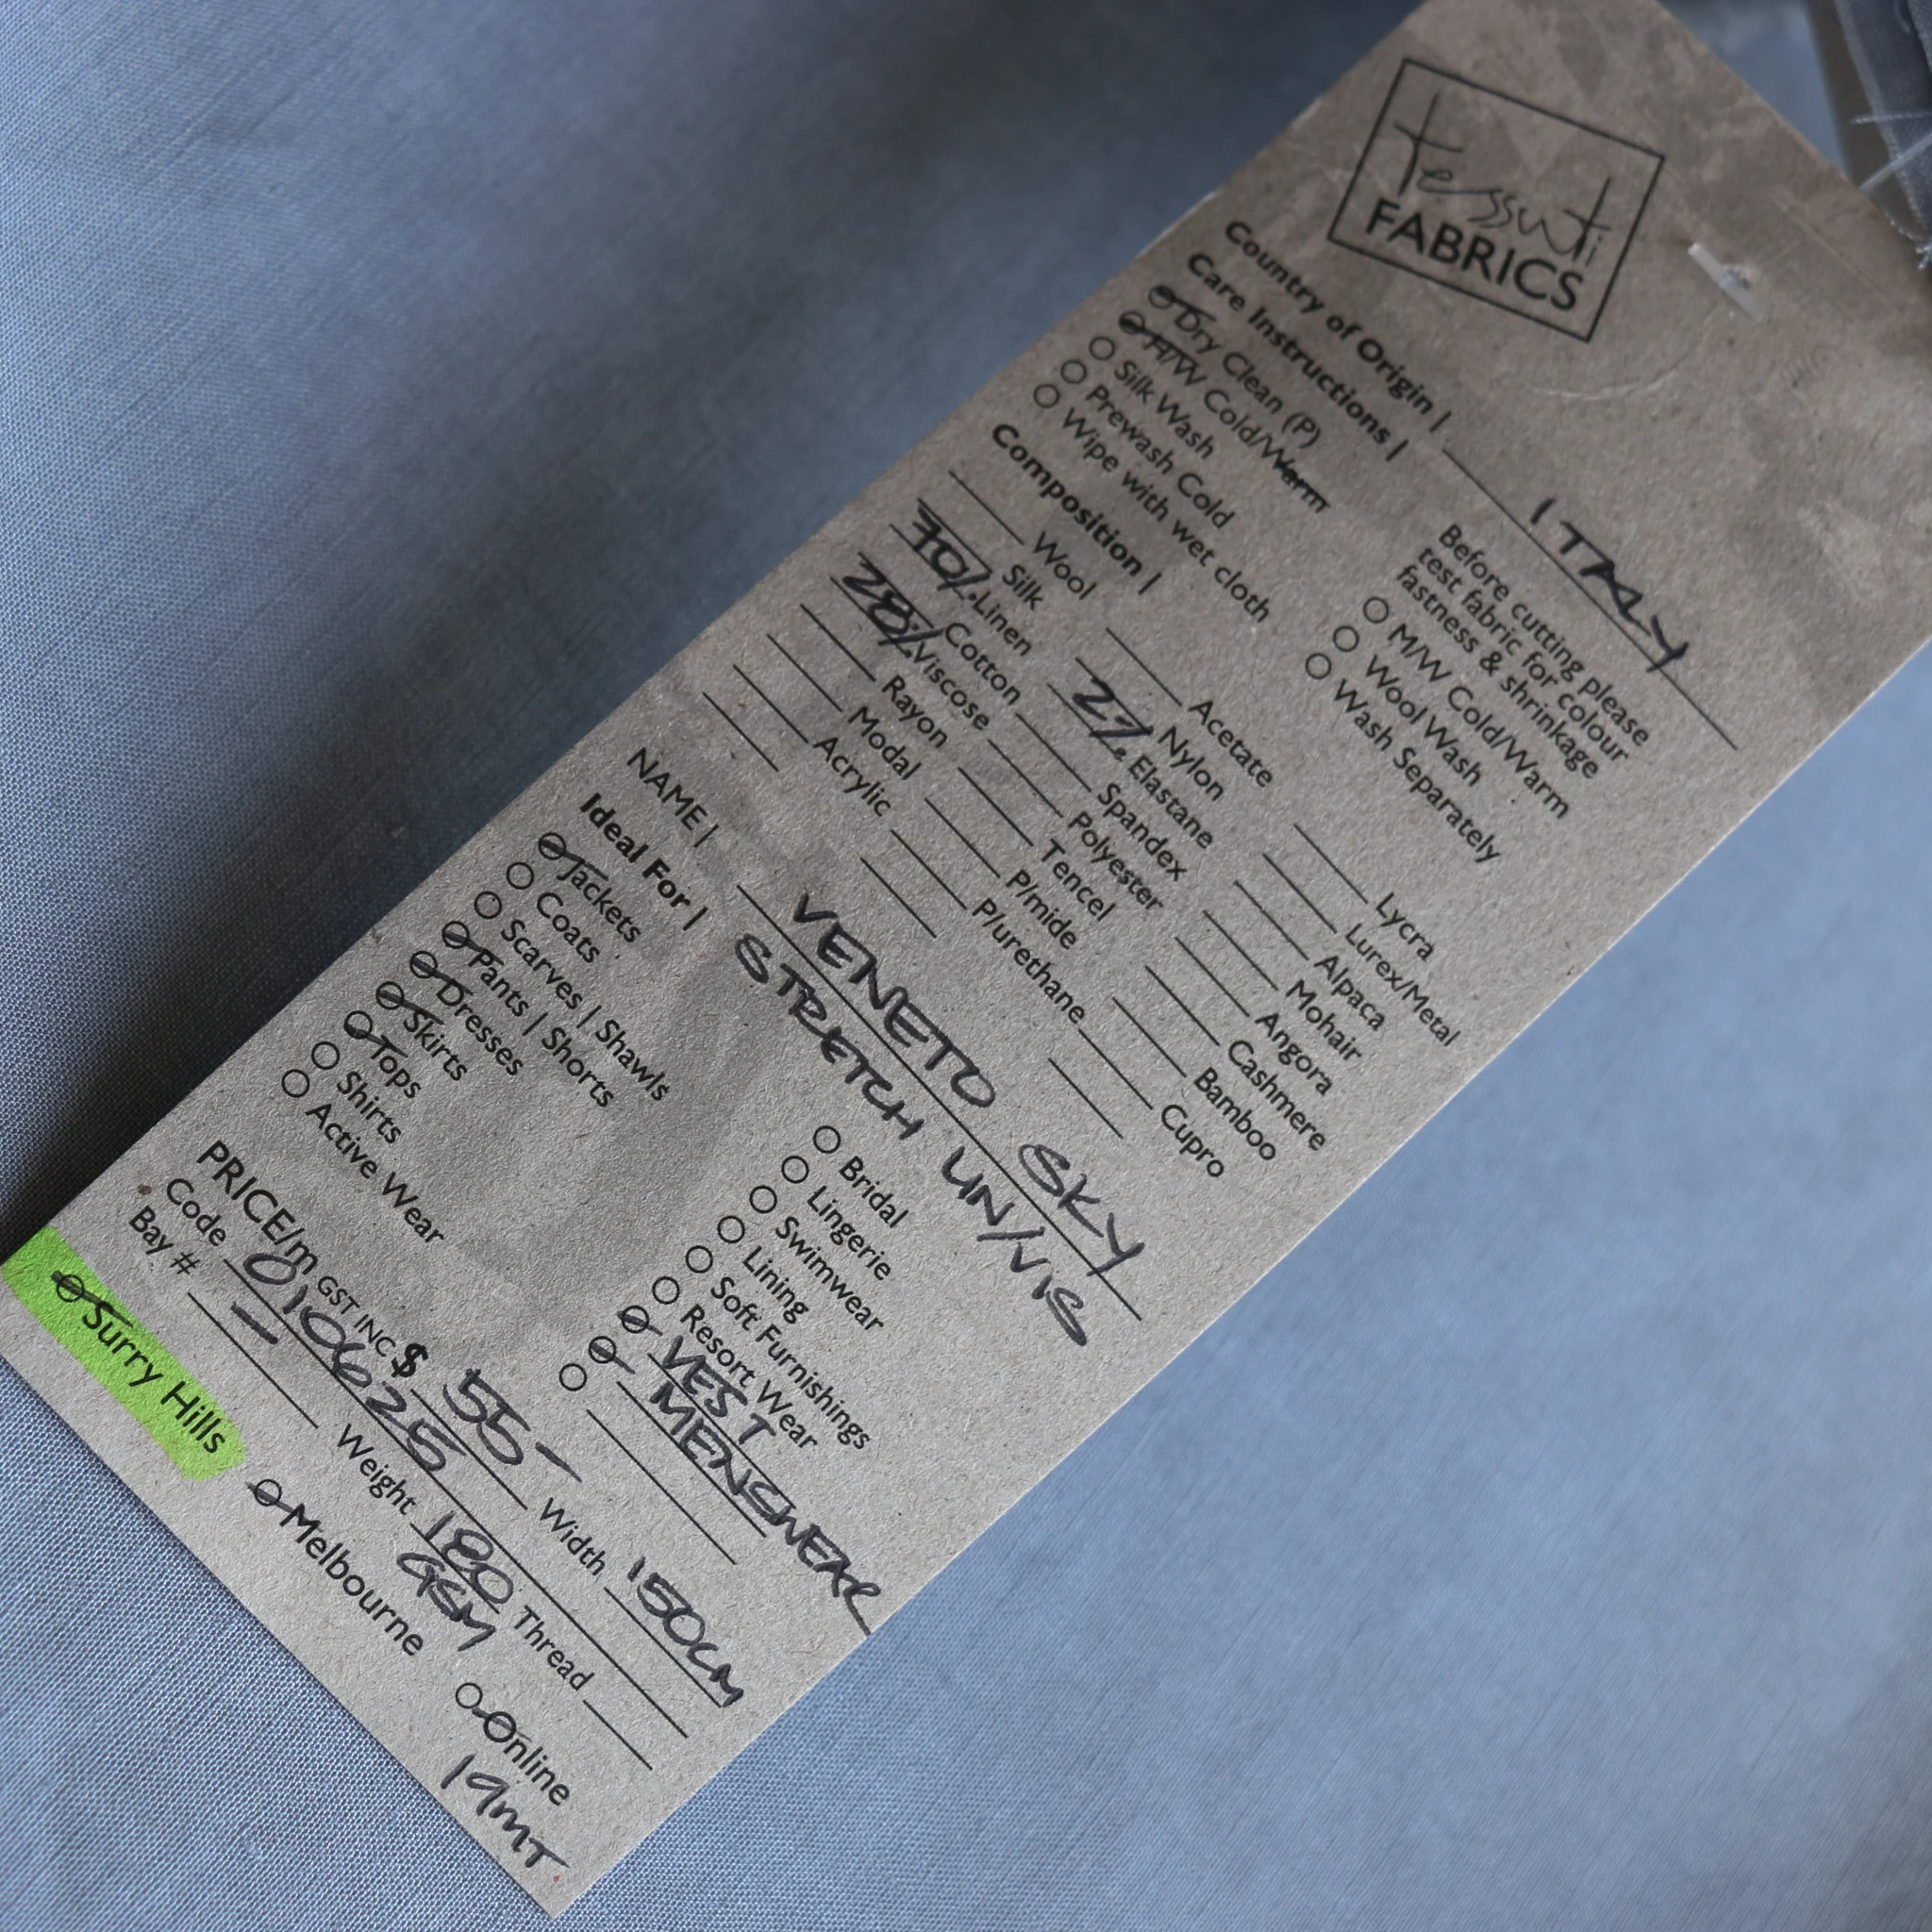 tessuti
FABRICS
Country of Origin | ITALY
Care Instructions |
Before cutting please
test fabric for colour
fastness & shrinkage
Dry Clean (P)
H/W Cold/Warm
Silk Wash
Prewash Cold
Wipe with wet cloth
M/W Cold/Warm
Wool Wash
Wash Separately
Composition |
Wool
Silk
70% Linen
Cotton
28% Viscose
Rayon
Modal
Acrylic
Acetate
Nylon
2% Elastane
Spandex
Polyester
Tencel
P/mide
P/urethane
Lycra
Lurex/Metal
Alpaca
Mohair
Angora
Cashmere
Bamboo
Cupro
NAME | VENETO SKY
STRETCH LIN/VIS
Ideal For |
Jackets
Coats
Scarves | Shawls
Pants | Shorts
Dresses
Skirts
Tops
Shirts
Active Wear
Bridal
Lingerie
Swimwear
Lining
Soft Furnishings
Resort Wear
VEST
MENSWEAR
PRICE/m GST INC $ 55- Width 150cm
Code 010625
Bay # - Weight 180 GSM Thread
Surry Hills Melbourne Online
19MT